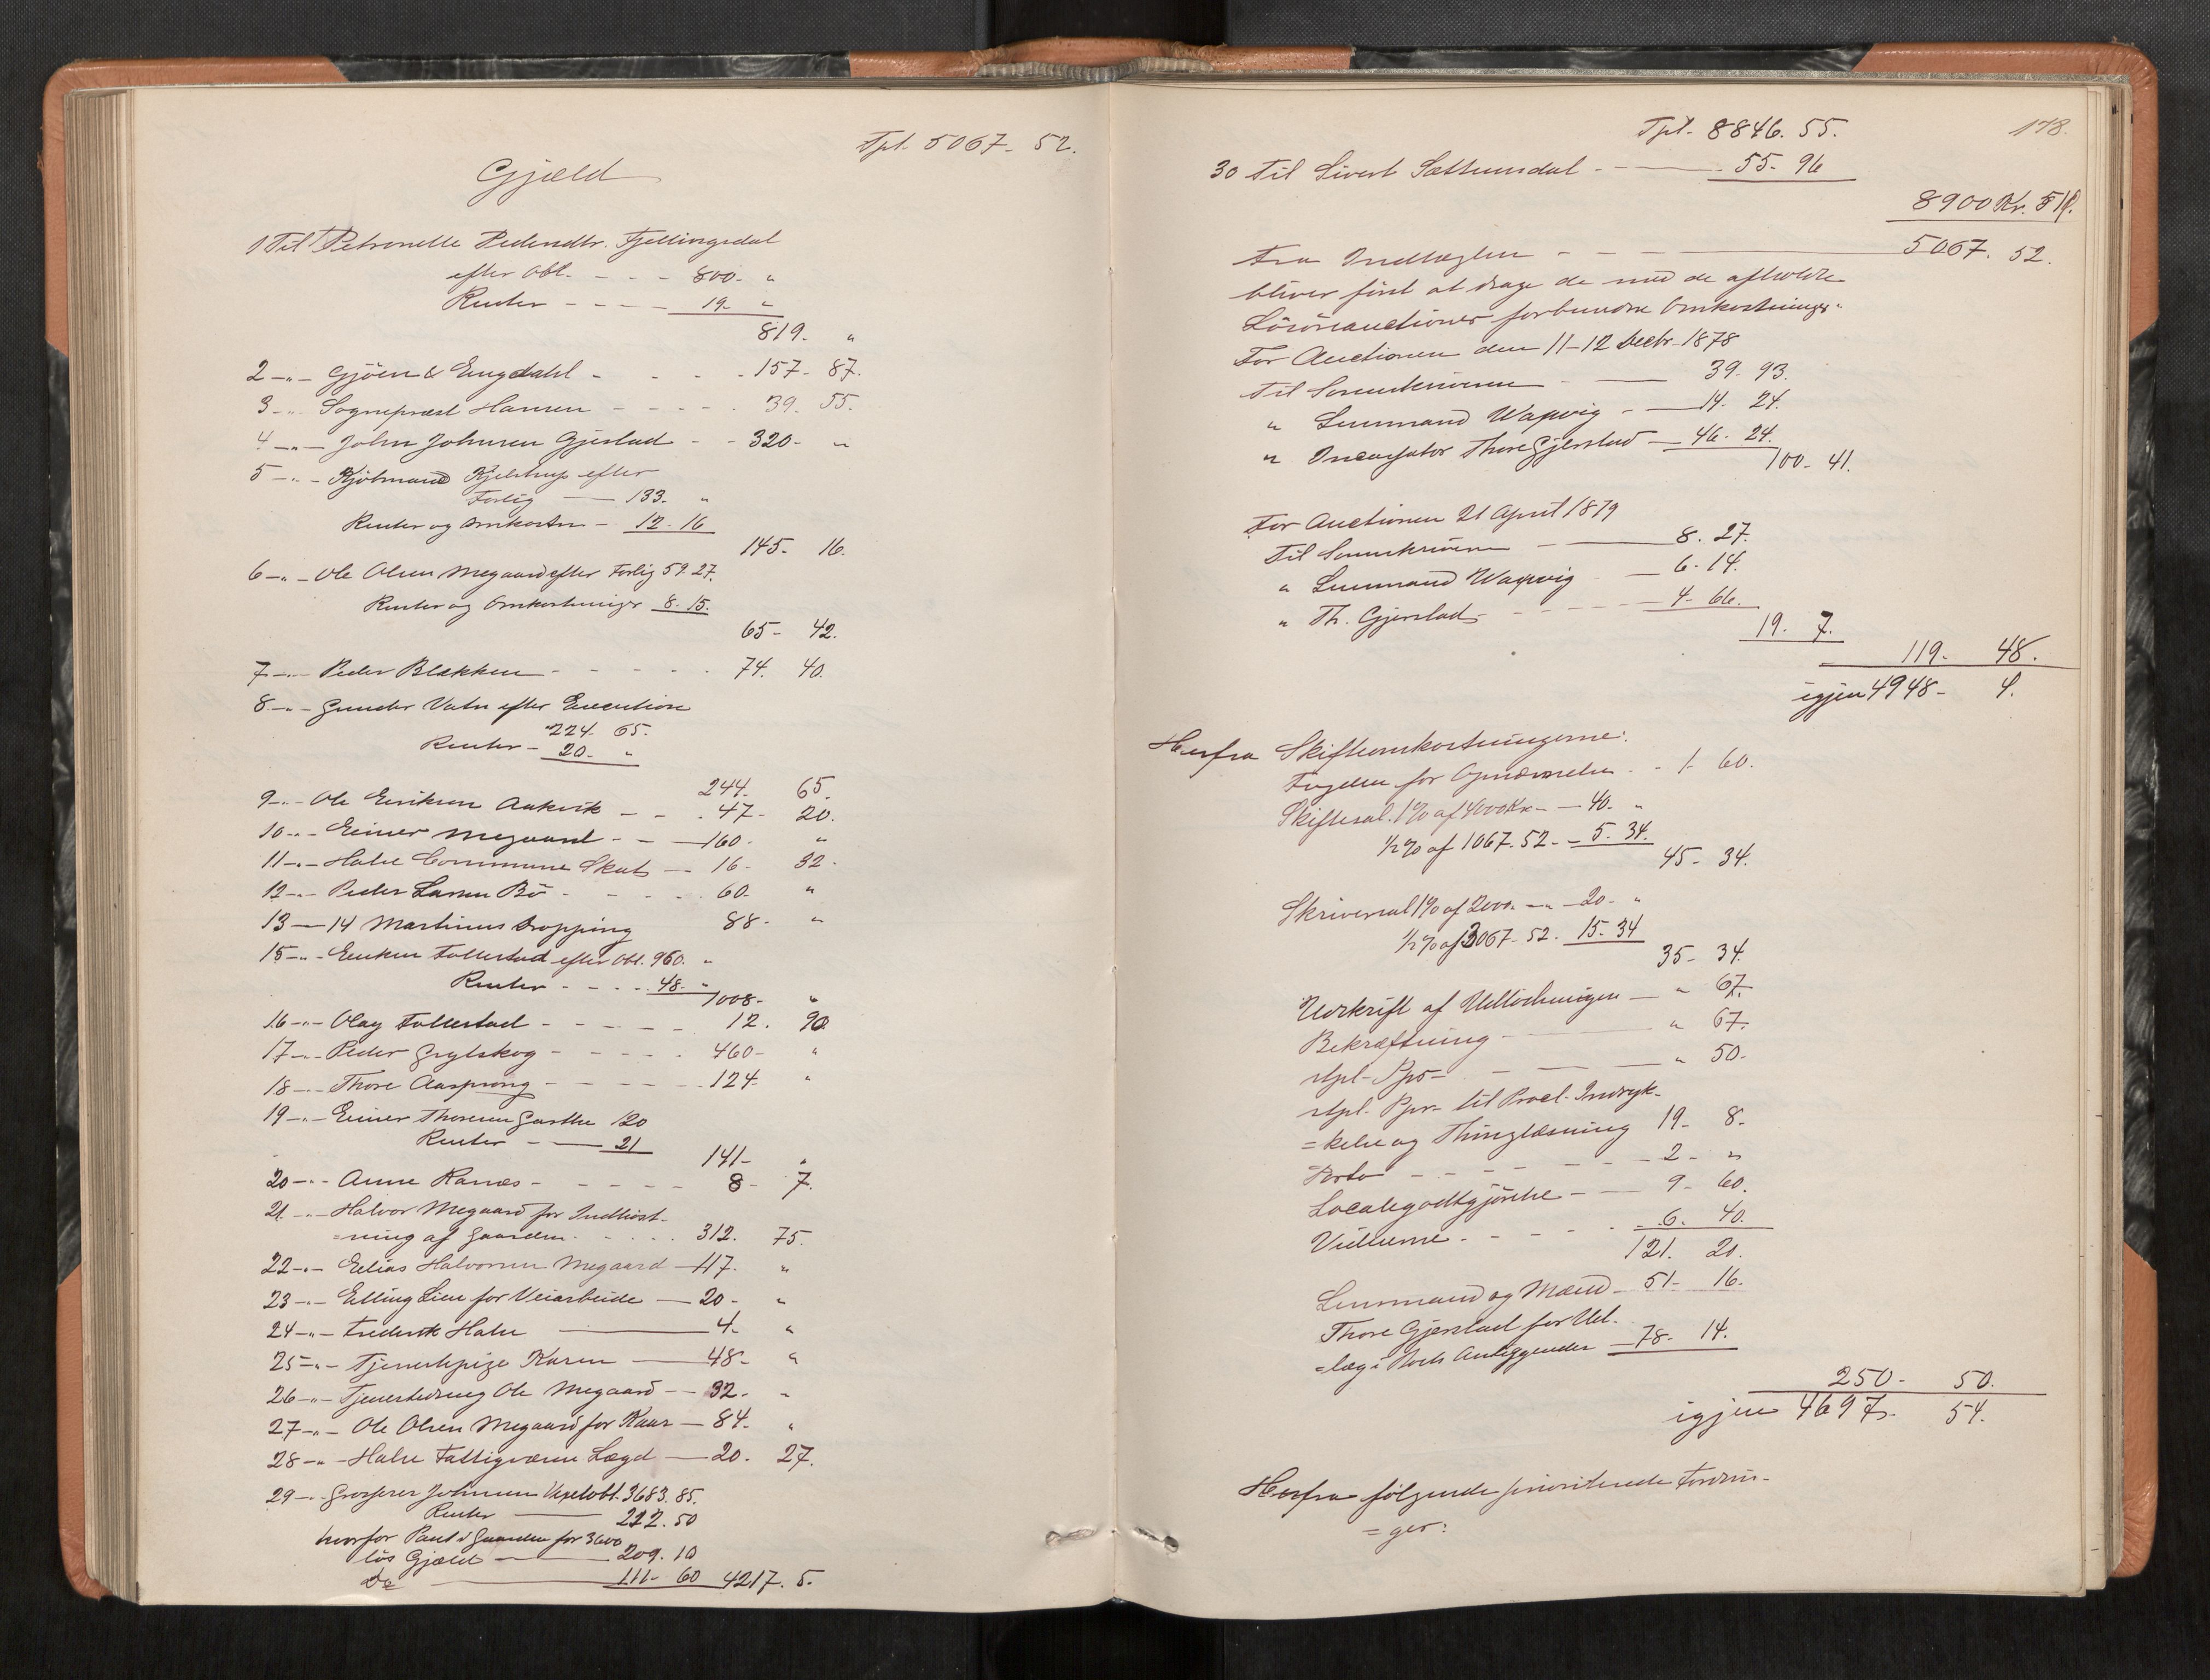 Tpt. 5067- 52.
Gjæld
1 Til Petronelle Pedersdtr. Fjellingsdal
efter Obl. - - - 800. "
Renter - - - - 19. "
819. "
2 -"- Gjöen & Engdahl - - - - 157. 87.
3 -"- Sognepræst Hansen - - - - 39. 55.
4 -"- John Johnsen Gjerstad - - 320- "
5 -"- Kjöbmand Kjelstrup efter
Forlig - 133. "
Renter og Omkostn - 12-16
145- 16.
6 -"- Ole Olsen Megaard efter Forlig 57.27.
Renter og Omkostninger 8-15.
65- 42.
7 -"- Peder Blekken - - - - - 74. 40.
8 -"- Gunder Vatn efter Execution
224. 65.
Renter - 20. "
244. 65.
9 -"- Ole Eriksen Aakvik - - - 47- 20.
10 -"- Einer Megaard - - 160. "
11 -"- Halse Commune Skat - 16- 32-
12 -"- Peder Larsen Bö - - - - 60. "
13 - 14 Martinus Dropping 88- "
15 -"- Eriksen Follestad efter Obl. 960. "
Renter - - - - 48. "
1008- "
16 -"- Olag Follestad - - - - - 12. 90
17 -"- Peder Grytskog - - - - - 460- "
18 -"- Thore Aasprong - - - - - 124. "
19 -"- Einer Thoresen Garthe 120
Renter - - 21
141- "
20 -"- Anne Ranæs - - - - - 8- 7.
21. -"- Halvor Megaard for Indhöst-
=ning af Gaarden - - - - 312. 75.
22 -"- Elias Halvorsen Megaard - 117. "
23 -"- Elling Lien for Veiarbeide - 20- "
24 -"- Frederik Halse - 4. "
25 -"- Tjenestepige Karen - 48- "
26 -"- Tjenestedreng Ole Megaard - - 32. "
27 -"- Ole Olsen Megaard for Kaar - 84. "
28 -"- Halse Fattigvæsen Lægd - 20. 27.
29 -"- Grosserer Johnsen Vexelobl. 3683. 85.
Renter - 212. 50
hvorfor Pant i Gaarden for 3600
lös Gjæld - 209. 10
Do - 111- 60 4217. 5.
178.
Tpt- 8846. 55.
30 Til Sivert Sættemsdal - - 55- 96
8900 Kr. 51.
Fra Indtægten - - - 5067. 52.
bliver först at drage de med de afholdte
Lösöreauctioner forbundne Omkostninger.
For Auctionen den 11-12 Decbr 1878
Til Sorenskriveren - - 39. 93.
" Lensmand Waxvig - - 14- 24.
" Incassator Thore Gjerstad - 46. 24.
100- 41.
For Auctionen 21 April 1879
Til Sorenskriveren - - 8. 27.
" Lensmand Waxvig - 6- 14.
" Th. Gjerstad - - - - 4- 66.
19. 7.
119- 48.
igjen 4948- 4.
Herfra Skifteomkostningerne:
Fogden for Opnævnelse - - 1- 60.
Skiftesal. 1% af 4000 Kr - - 40. "
1/2% af 1067. 52. - 5. 34.
45- 34.
Skriversal 1% af 2000. -"- 20- "
1/2% af 3067- 52. 15- 34
35- 34.
Udskrift af Udlodningen - " 67.
Bekræftning - - " 67.
Stpl. Ppr - - - " 50-
Stpl. Ppr- til Procl. Indryk-
=kelse og Thinglæsning 19- 8-
Porto - - - - - - - 2- "
Localegodtgjörelse - - 9- 60.
Vidnerne - - - - - 6. 40.
121. 20.
Lensmand og Mænd - 51- 16.
Thore Gjerstad for Ud-
=læg i Boets Anliggender - 78- 14.
250- 50.
igjen 4697- 54.
Herfra fölgende prioriterede Fordrin-
=ger: